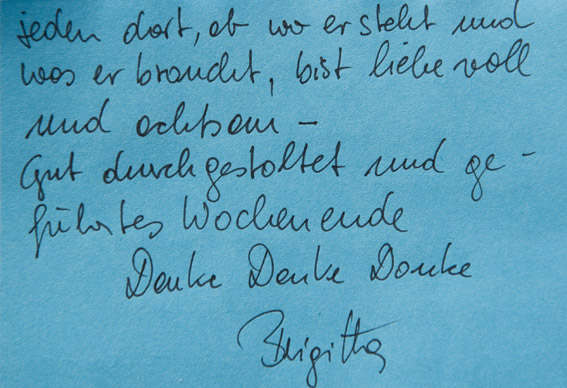 jeden dort, ab wo er steht und
was er braucht, bist liebevoll
und achtsam –
Gut durchgestaltet und ge-
führtes Wochenende
Danke Danke Danke
Brigitta